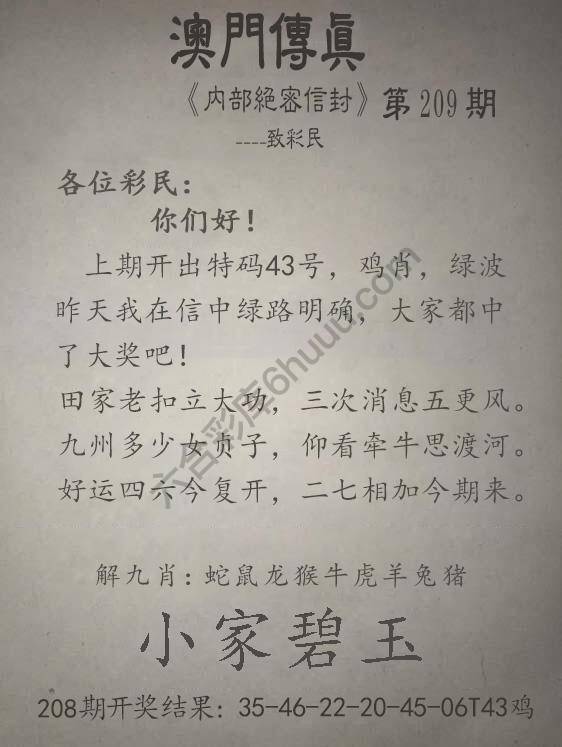 澳門傳眞
《内部絕密信封》第209期
----致彩民
各位彩民：
你们好！
上期开出特码43号，鸡肖，绿波
昨天我在信中绿路明确，大家都中
了大奖吧！
田家老扣立大功，三次消息五更风。
九州多少女贞子，仰看牵牛思渡河。
好运四六今复开，二七相加今期来。
解九肖：蛇鼠龙猴牛虎羊兔猪
小家碧玉
208期开奖结果：35-46-22-20-45-06T43鸡
六合彩库6huuu.com